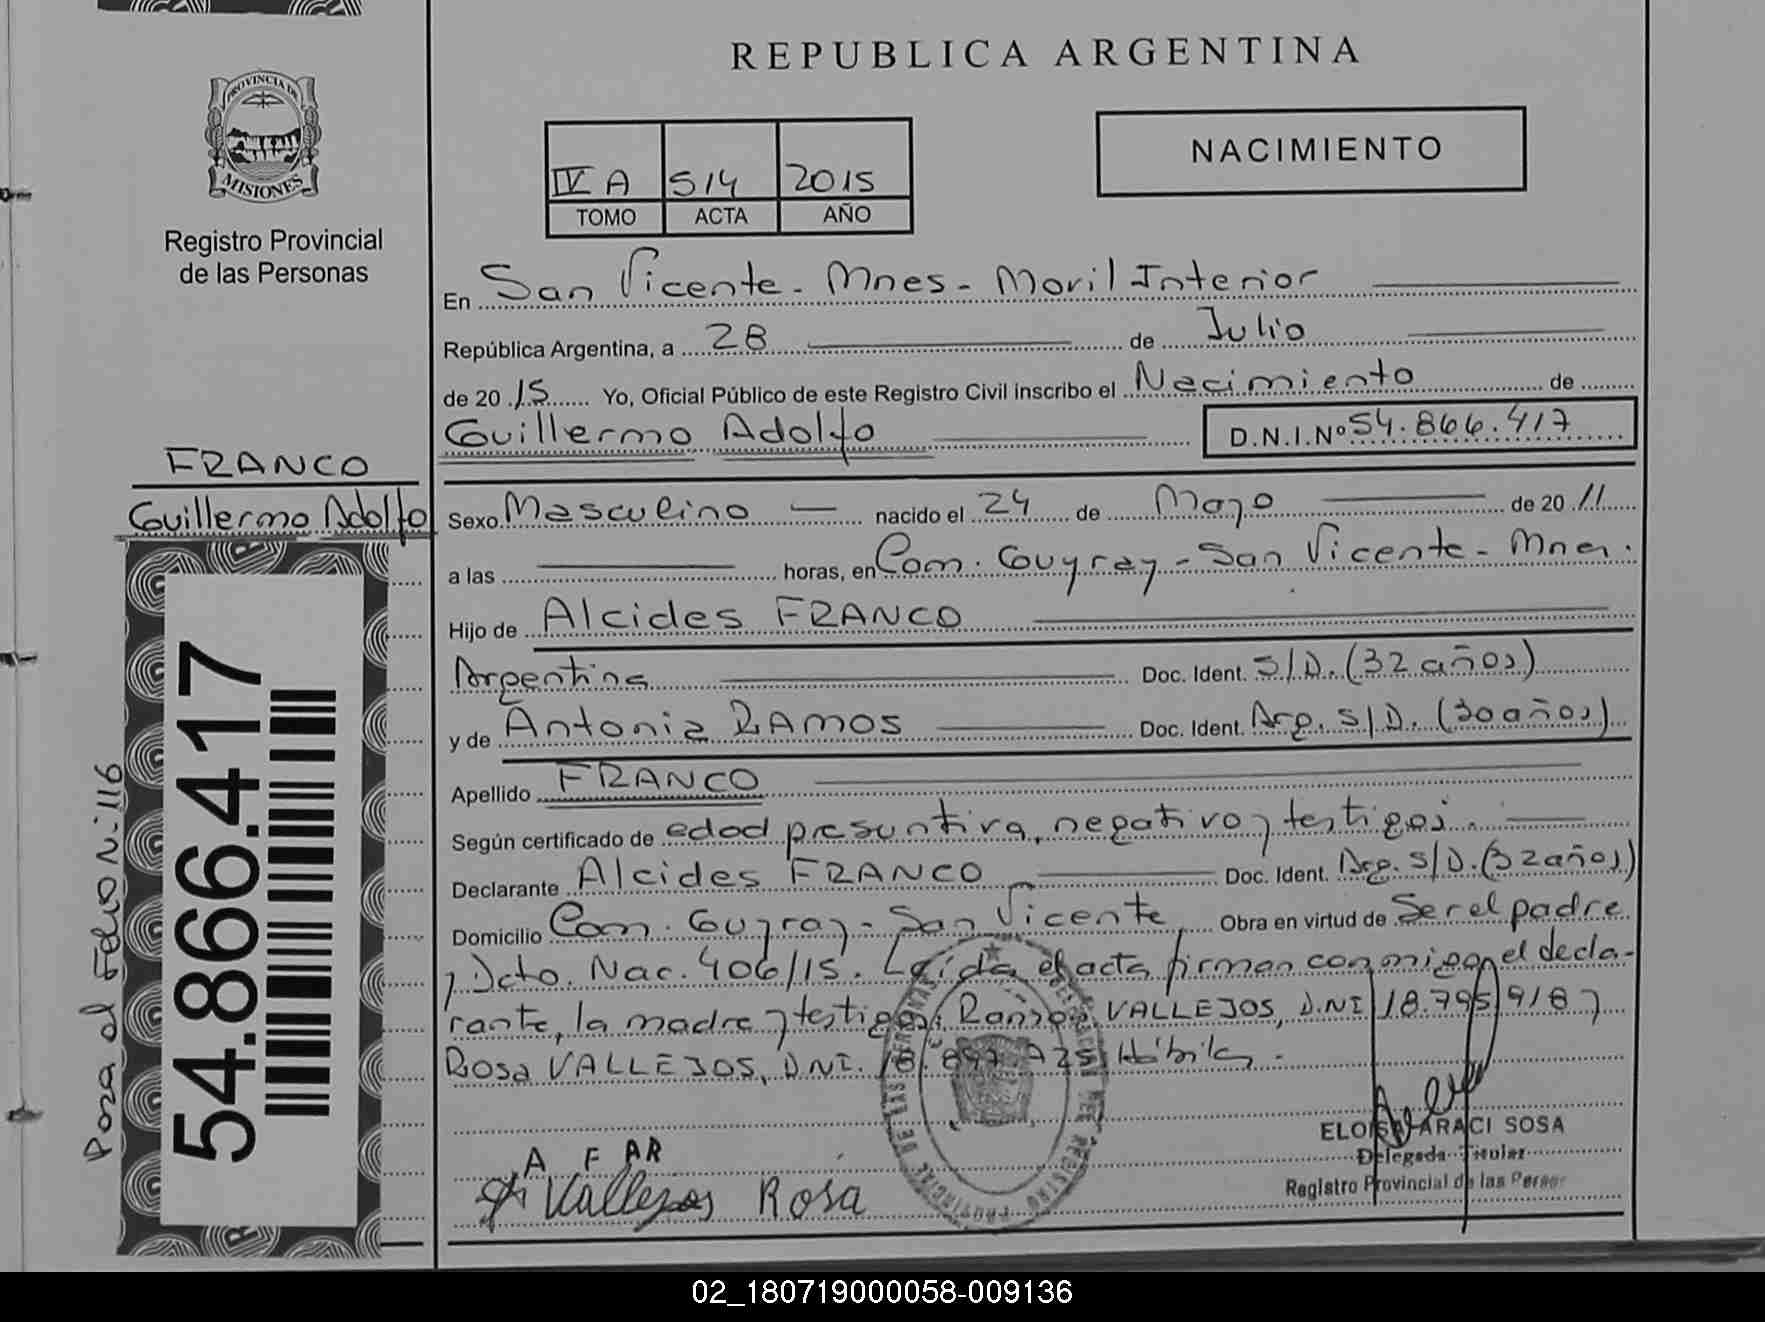 REPUBLICA ARGENTINA
PROVINCIA DE
MISIONES
Registro Provincial
de las Personas
NACIMIENTO
IV A 514 2015
TOMO ACTA AÑO
En San Vicente - Mnes - Movil Interior
República Argentina, a 28 de Julio
de 2015 Yo, Oficial Público de este Registro Civil inscribo el Nacimiento de
Guillermo Adolfo D.N.I.Nº 54.866.417
FRANCO
Guillermo Adolfo
Sexo Masculino nacido el 24 de Mayo de 2011
a las horas, en Com. Guyray - San Vicente - Mnes.
Hijo de Alcides FRANCO
Argentina Doc. Ident. S/D. (32 años)
y de Antonia RAMOS Doc. Ident. Arg. S/D. (30 años)
Apellido FRANCO
Según certificado de edad presuntiva, negativo y testigos.
Declarante Alcides FRANCO Doc. Ident. Arg. S/D. (32 años)
Domicilio Com. Guyray - San Vicente Obra en virtud de Ser el padre
y Dcto. Nac. 406/15. Leida el acta firman conmigo el decla-
rante, la madre y testigos: VALLEJOS, D.N.I 18.795.918 y
Rosa VALLEJOS, D.N.I. Hábiles.
54.866.417
Pasa al Folio Nº: 116
A F AR
Vallejos Rosa
ELOISA ARACI SOSA
Delegada Titular
Registro Provincial de las Person
02_180719000058-009136